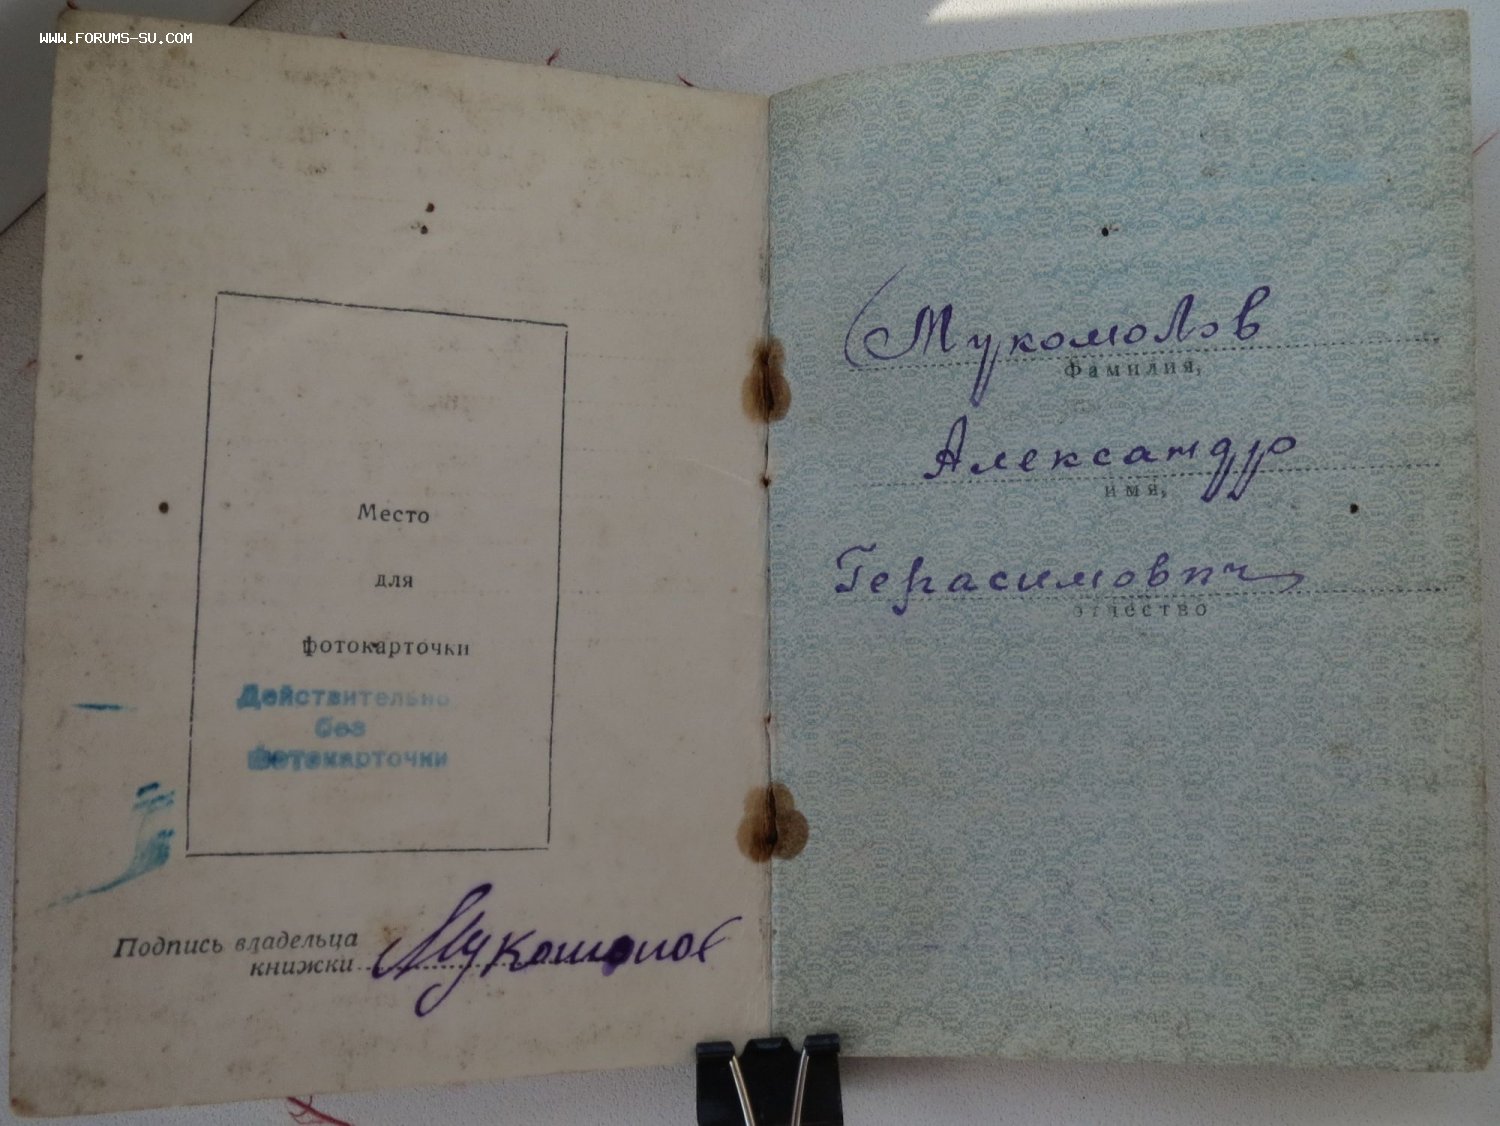 WWW.FORUMS-SU.COM
Место
для
фотокарточки
Действительно
без
фотокарточки
Подпись владельца
книжки Мукомолов
Мукомолов
Фамилия,
Александр
имя,
Герасимович
отчество